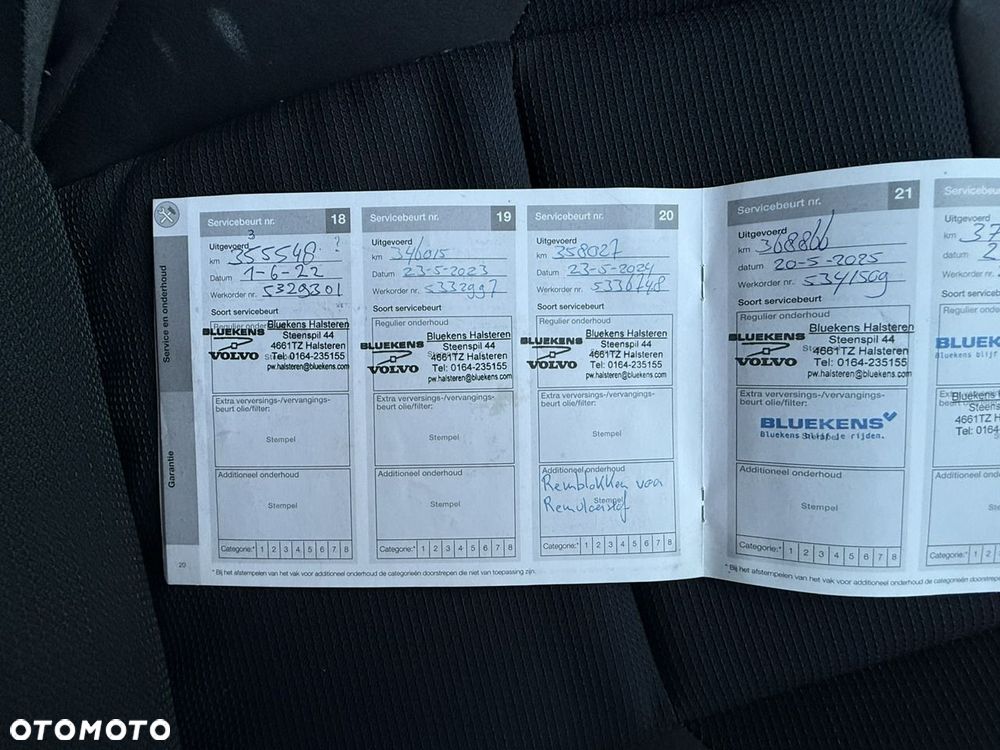 Service en onderhoud
Garantie
20
Servicebeurt nr. 18
Uitgevoerd
3
km 355548 ?
Datum 1-6-22
Werkorder nr. 5329301
Soort servicebeurt
Regulier onderhoud
BLUEKENS
VOLVO
Bluekens Halsteren
Steenspil 44
4661TZ Halsteren
Tel: 0164-235155
pw.halsteren@bluekens.com
Extra verversings-/vervangings-
beurt olie/filter:
Stempel
Additioneel onderhoud
Stempel
Categorie:* 1 2 3 4 5 6 7 8
Servicebeurt nr. 19
Uitgevoerd
km 346015
Datum 23-5-2023
Werkorder nr. 5332997
Soort servicebeurt
Regulier onderhoud
BLUEKENS
VOLVO
Bluekens Halsteren
Steenspil 44
4661TZ Halsteren
Tel: 0164-235155
pw.halsteren@bluekens.com
Extra verversings-/vervangings-
beurt olie/filter:
Stempel
Additioneel onderhoud
Stempel
Categorie:* 1 2 3 4 5 6 7 8
Servicebeurt nr. 20
Uitgevoerd
km 358027
Datum 23-5-2024
Werkorder nr. 5336748
Soort servicebeurt
Regulier onderhoud
BLUEKENS
VOLVO
Bluekens Halsteren
Steenspil 44
4661TZ Halsteren
Tel: 0164-235155
pw.halsteren@bluekens.com
Extra verversings-/vervangings-
beurt olie/filter:
Stempel
Additioneel onderhoud
Remblokken voor
Stempel
Remvloeistof
Categorie:* 1 2 3 4 5 6 7 8
* Bij het afstempelen van het vak voor additioneel onderhoud de categorieën doorstrepen die niet van toepassing zijn.
Servicebeurt nr. 21
Uitgevoerd
km 368866
datum 20-5-2025
Werkorder nr. 5341509
Soort servicebeurt
Regulier onderhoud
BLUEKENS
VOLVO
Bluekens Halsteren
Steenspil 44
4661TZ Halsteren
Tel: 0164-235155
pw.halsteren@bluekens.com
Extra verversings-/vervangings-
beurt olie/filter:
BLUEKENS
Bluekens blijf je rijden.
Additioneel onderhoud
Stempel
Categorie:* 1 2 3 4 5 6 7 8
* Bij het afstempelen van het vak voor additioneel onderhoud de categorieën doorstrepen
Servicebeurt
Uitgevoerd
km 37
datum 2
Werkorder nr.
Soort serviceb
Regulier onderh
BLUEK
Bluekens blijf
Bluekens
Steens
4661TZ H
Tel: 0164
Additioneel on
Categorie:* 1 2
OTOMOTO